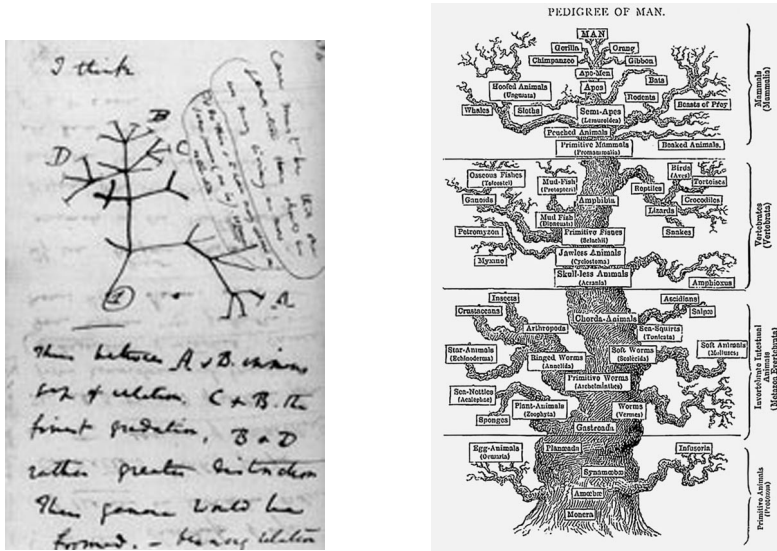 I think
B
D
C
A
1
Thus between A & B. immense
gap of relation. C & B. the
finest gradation, B & D
rather greater distinction
Thus genera would be
formed. — bearing relation
PEDIGREE OF MAN.
MAN
Gorilla
Orang
Chimpanzee
Gibbon
Ape-Men
Bats
Hoofed Animals
(Ungulata)
Apes
Rodents
Whales
Sloths
Beasts of Prey
Semi-Apes
(Lemuroidea)
Pouched Animals
Primitive Mammals
(Promammalia)
Beaked Animals.
Mammals
(Mammalia)
Osseous Fishes
(Teleostei)
Mud-Fish
(Protopteri)
Birds
(Aves)
Tortoises
Reptiles
Ganoids
Amphibia
Crocodiles
Mud Fish
(Dipneusti)
Lizards
Petromyzon
Primitive Fishes
(Selachii)
Snakes
Jawless Animals
(Cyclostoma)
Myxine
Skull-less Animals
(Acrania)
Amphioxus
Vertebrates
(Vertebrata)
Insects
Ascidians
Crustaceans
Salpæ
Chorda-Animals
Arthropods
Sea-Squirts
(Tunicata)
Star-Animals
(Echinoderma)
Ringed Worms
(Annelida)
Soft Worms
(Scolecida)
Soft Animals
(Molluscs)
Primitive Worms
(Archelminthes)
Sea-Nettles
(Acalephæ)
Plant-Animals
(Zoophyta)
Worms
(Vermes)
Sponges
Gastræada
Invertebrate Intestinal
Animals
(Metazoa Evertebrata)
Egg-Animals
(Ovularia)
Planæada
Infusoria
Synamœbæ
Amœbæ
Monera
Primitive Animals
(Protozoa)